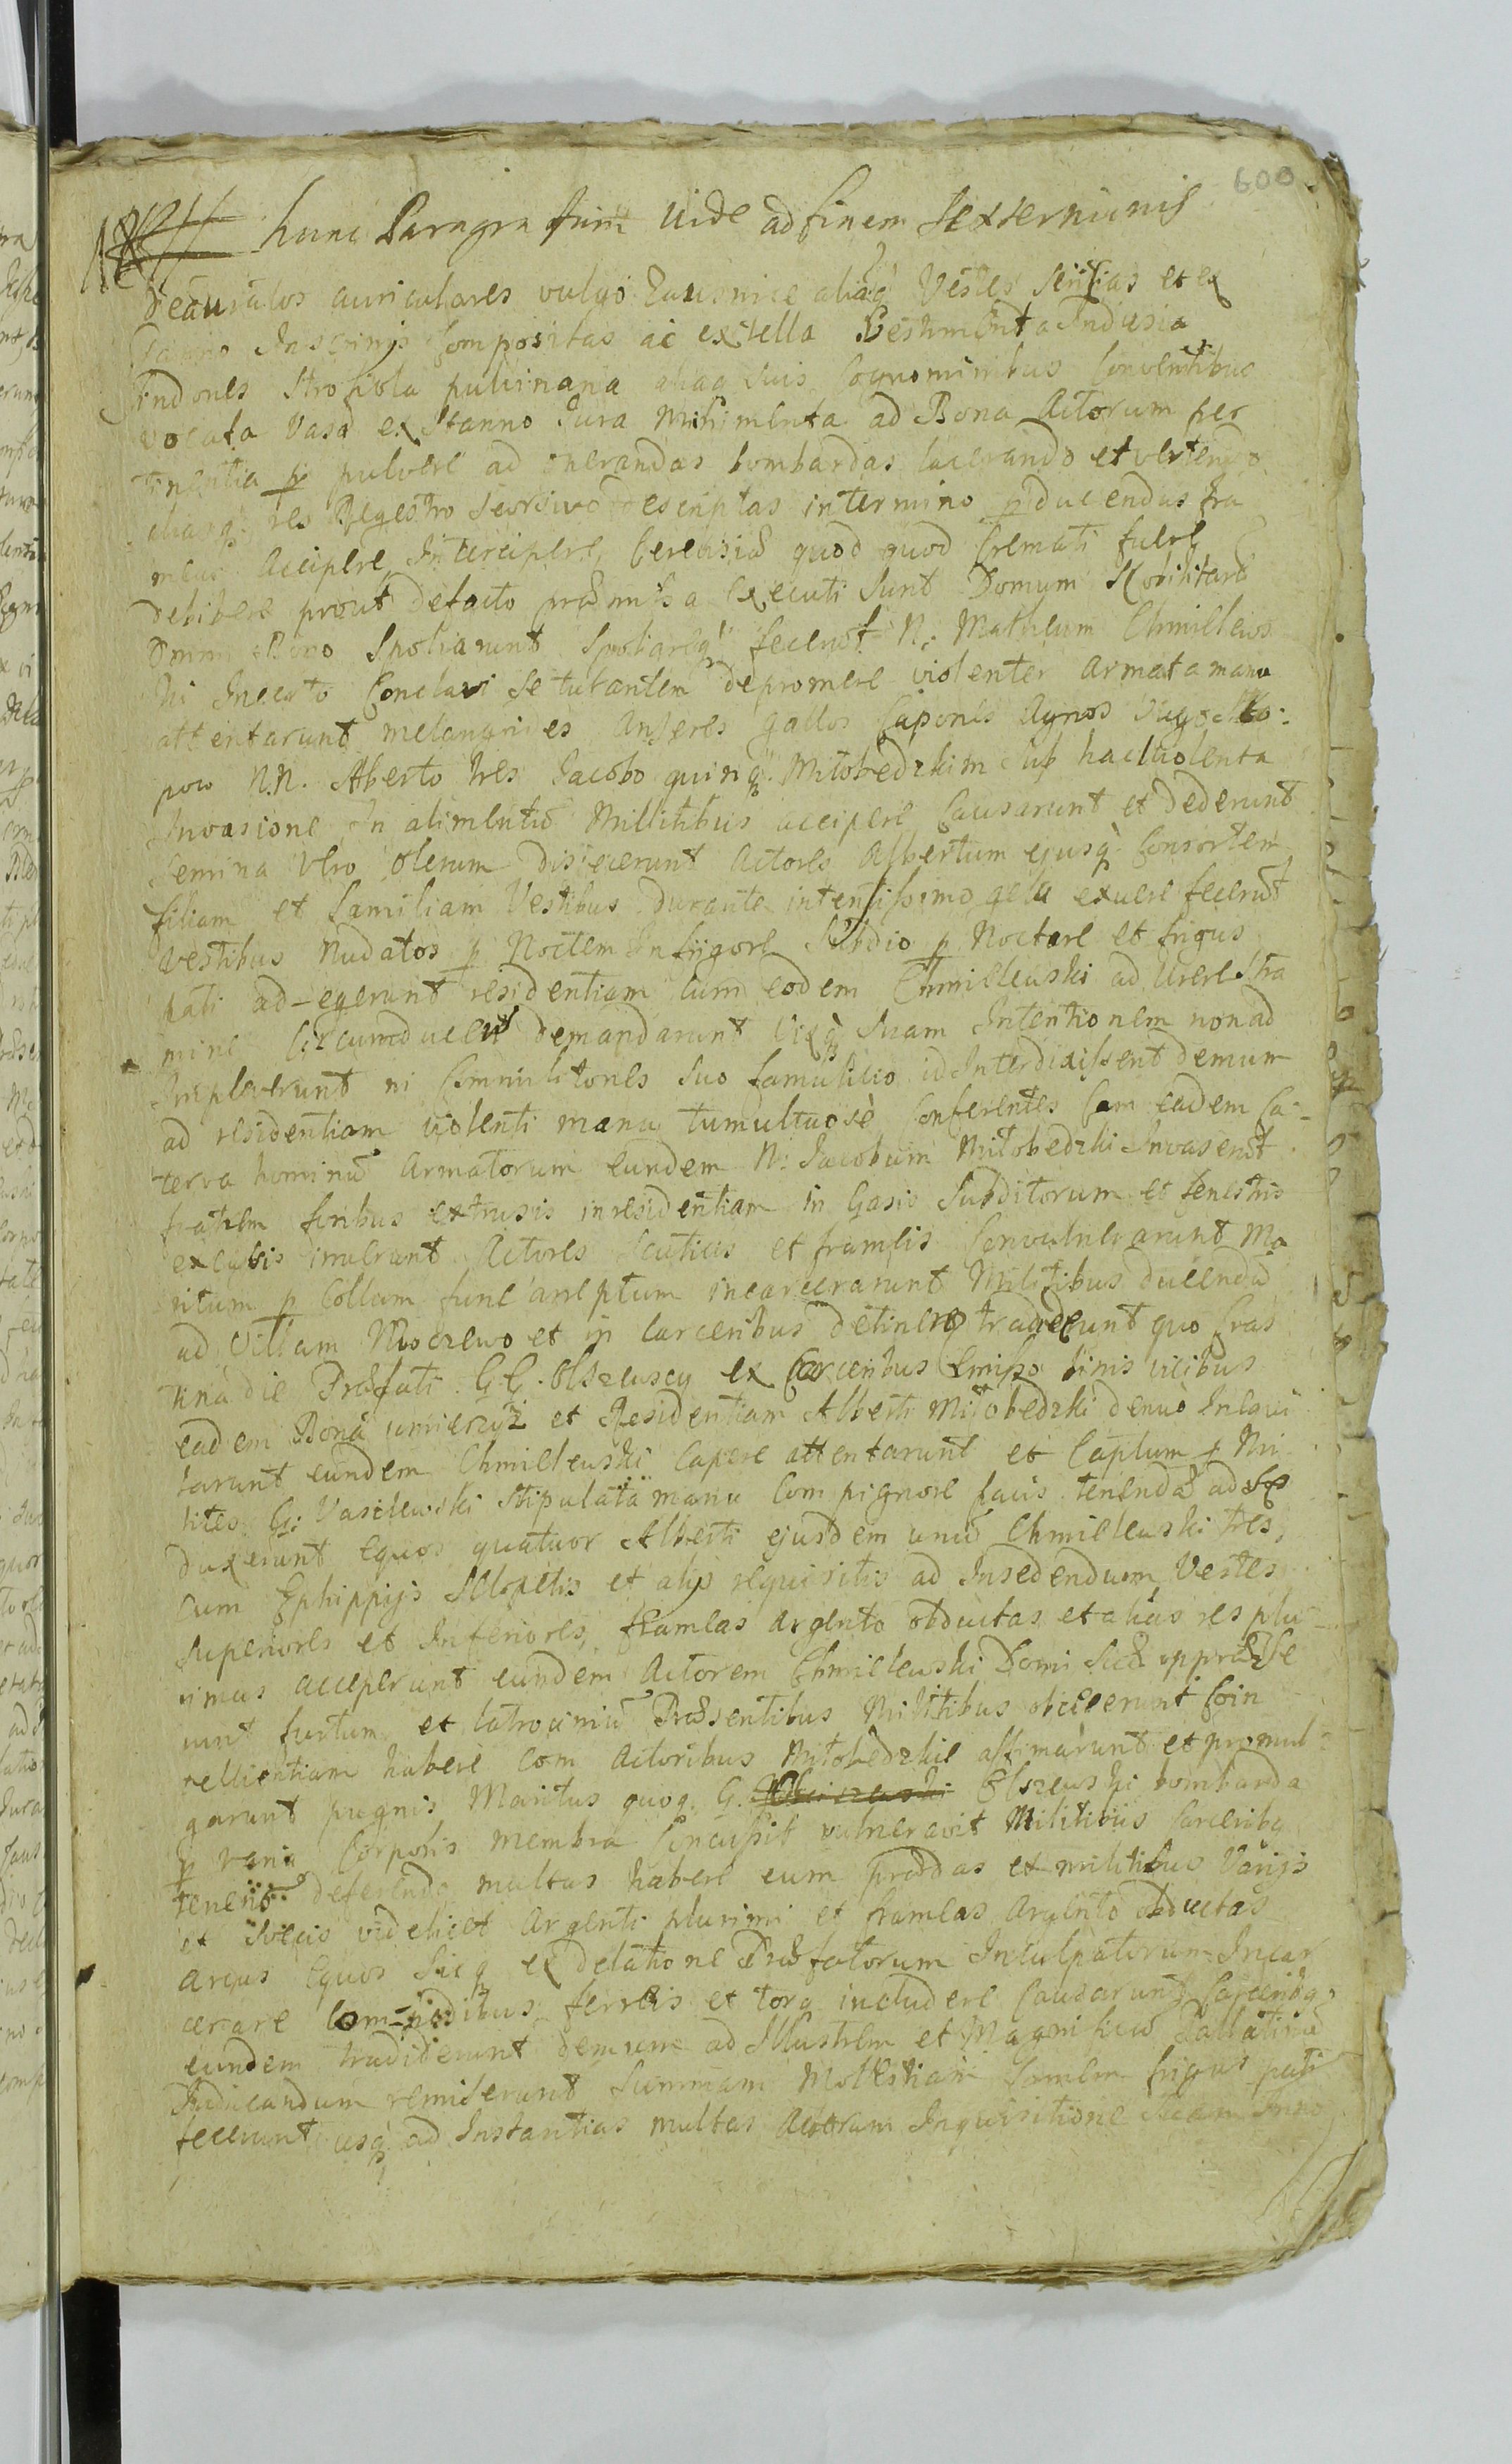 600
hunc Paragrafum vide ad finem Sexsernionis
auriculares vulgo Zausnice aliasq Vestes et ex
Panno compositas ac ex tella Vestimenta Indusia
Sindones Strophola pulvinaria aliaq suis Cognominibus Convenientibus
vocata Vasa ex Stanno Iura Munimenta ad Bona Actorum per
tinentia p pulvere ad onerandas bombardas lacerando et vertendo
aliasq res Regestro seorsivo descriptas in termino p ducendas fra
meas Accipere Intercipere Cerevisia quod quod Cremati fuere
debibere prout de facto præmissa Executi sunt Domum Nobilitare
Omni Bono Spoliarunt Spoliareq fecerut N. Matheum Chmilews
ki Incerto Conclavi se tutantem depromere violenter armata manu
attentarunt melangrides Anseres gallos Capones Agnos
N.N. Alberto tres Iacobo quinq Miłobedzkim Sub hac violenta
Invasione In alimentu Millitibus accipere Causarunt et dederunt
Semina vero olerum disiecerunt Actores Albertum ejusq Consortem
filiam et familiam Vestibus durante intensissimo gelu exuere fecerut
vestibus nudatos p Noctem In frigore Subdio p Noctare et frigus
pati ad-egerunt residentiam cum eodem Chmielewski ad Urere Stra
mine Circumducere demandarunt Vixq Suam Intentionem non ad
Impleverunt ni Commilitones suo famulicio id Interdixissent demum
ad residentiam violenti manu tumultuosè Conferentes Cum eadem Ca-
terva hominu Armatorum eundem N: Jacobum Miłobedzki Invaserut
fratrem foribus extrusis in residentiam in Gasio Subditorum et fenestris
excussis irruerunt Actores Scuticis et frameis Convulnerarunt Ma
ritum p Collum fune arreptum incarcerarunt Militibus ducendu
ad Villam Mroczewo et in Carceribus detinere tradiderunt quo Cras
tina die Præfati G.G. Olszewscy ex Carceribus Emisso binis vicibus
eadem Bona et Residentiam Alberti Miłobedzki denuò
tarunt eundem Chmielewski Capere attentarunt et Captum p Mi
lites G: Vasilewski Stipulata manu Com pignore facis tenenda ad
duxerunt Equos quatuor Alberti ejusdem unu Chmielewski tres
cum Ephippijs Sclopetis et alijs requisitis ad Insedendum Vestes
Superiores et Inferiores, frameas argento obductas et alias res plu-
rimas acceperunt eundem Actorem Chmielewski Domi suæ
runt furtum et latrociniu Præsentibus Militibus obiecerunt Coin
tellientiam habere Com Actoribus Miłobedzkie affirmarunt et promul-
garunt pugnis Maritus quoq G. Olszewski bombarda
p varia Corporis membra Concussit vulneravit Militibus Carceribq
tenere deferendo multas habere eum prædas et militibus Varijs
et Svecis videlicet Argenti plurimi et frameas Argento obductas
arcus Equos Sicq ex delatione Præfatorum Inculpatorum Incar
cerare Com-pedibus ferreis et torq includere Causarunt Carceribq
eundem tradiderunt demum ad Illustrem et Magnificu Pallatinu
Iudicandum remiserunt Summam Molestiam famem frigus pati
fecerunt usq ad Instantias multas Actorum Inquisitione